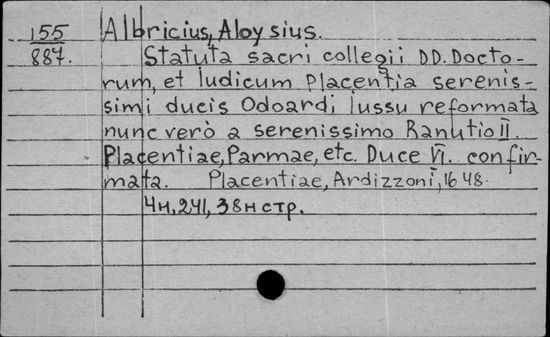 155 Albricius, Aloysius.
887. Statuta sacri collegii DD. Docto-
rum, et Iudicum Placentia serenis-
simi ducis Odoardi iussu reformata
nunc verò a serenissimo Ranutio II.
Placentiae, Parmae, etc. Duce VI. confir-
mata. Placentiae, Ardizzoni, 1648.
4н, 241, 38н стр.